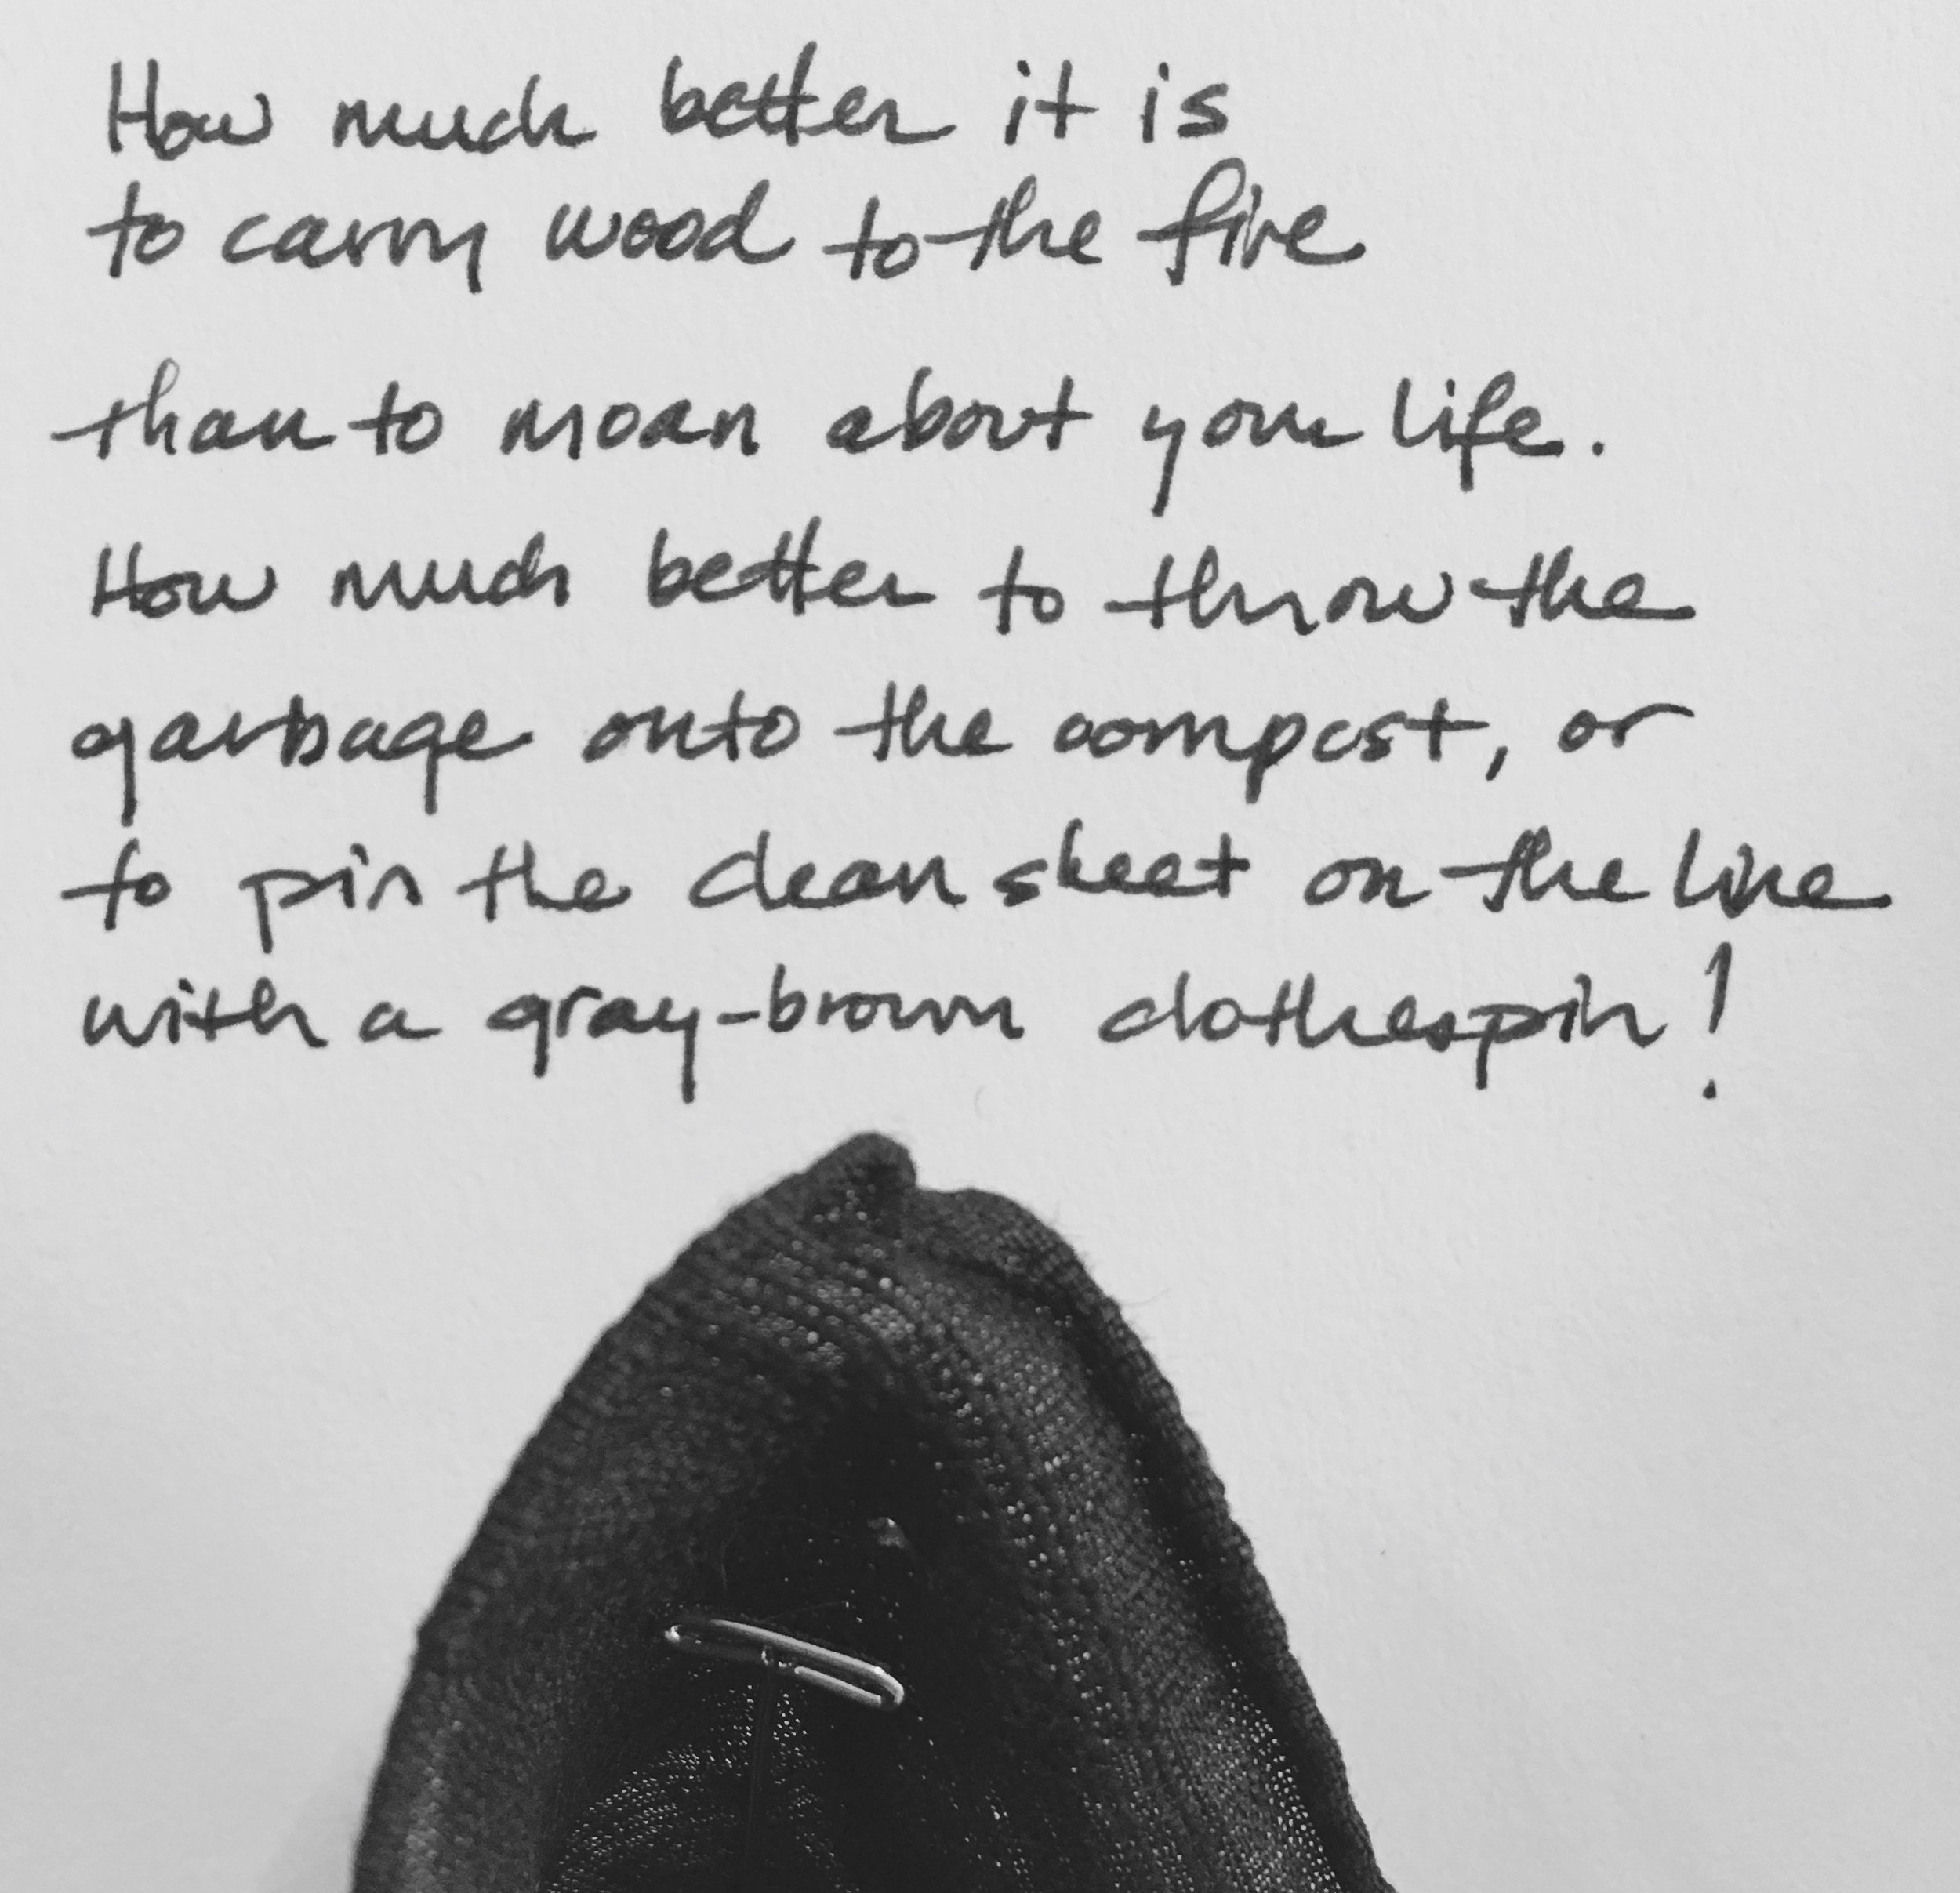 How much better it is
to carry wood to the fire
than to moan about your life.
How much better to throw the
garbage onto the compost, or
to pin the clean sheet on the line
with a gray-brown clothespin!